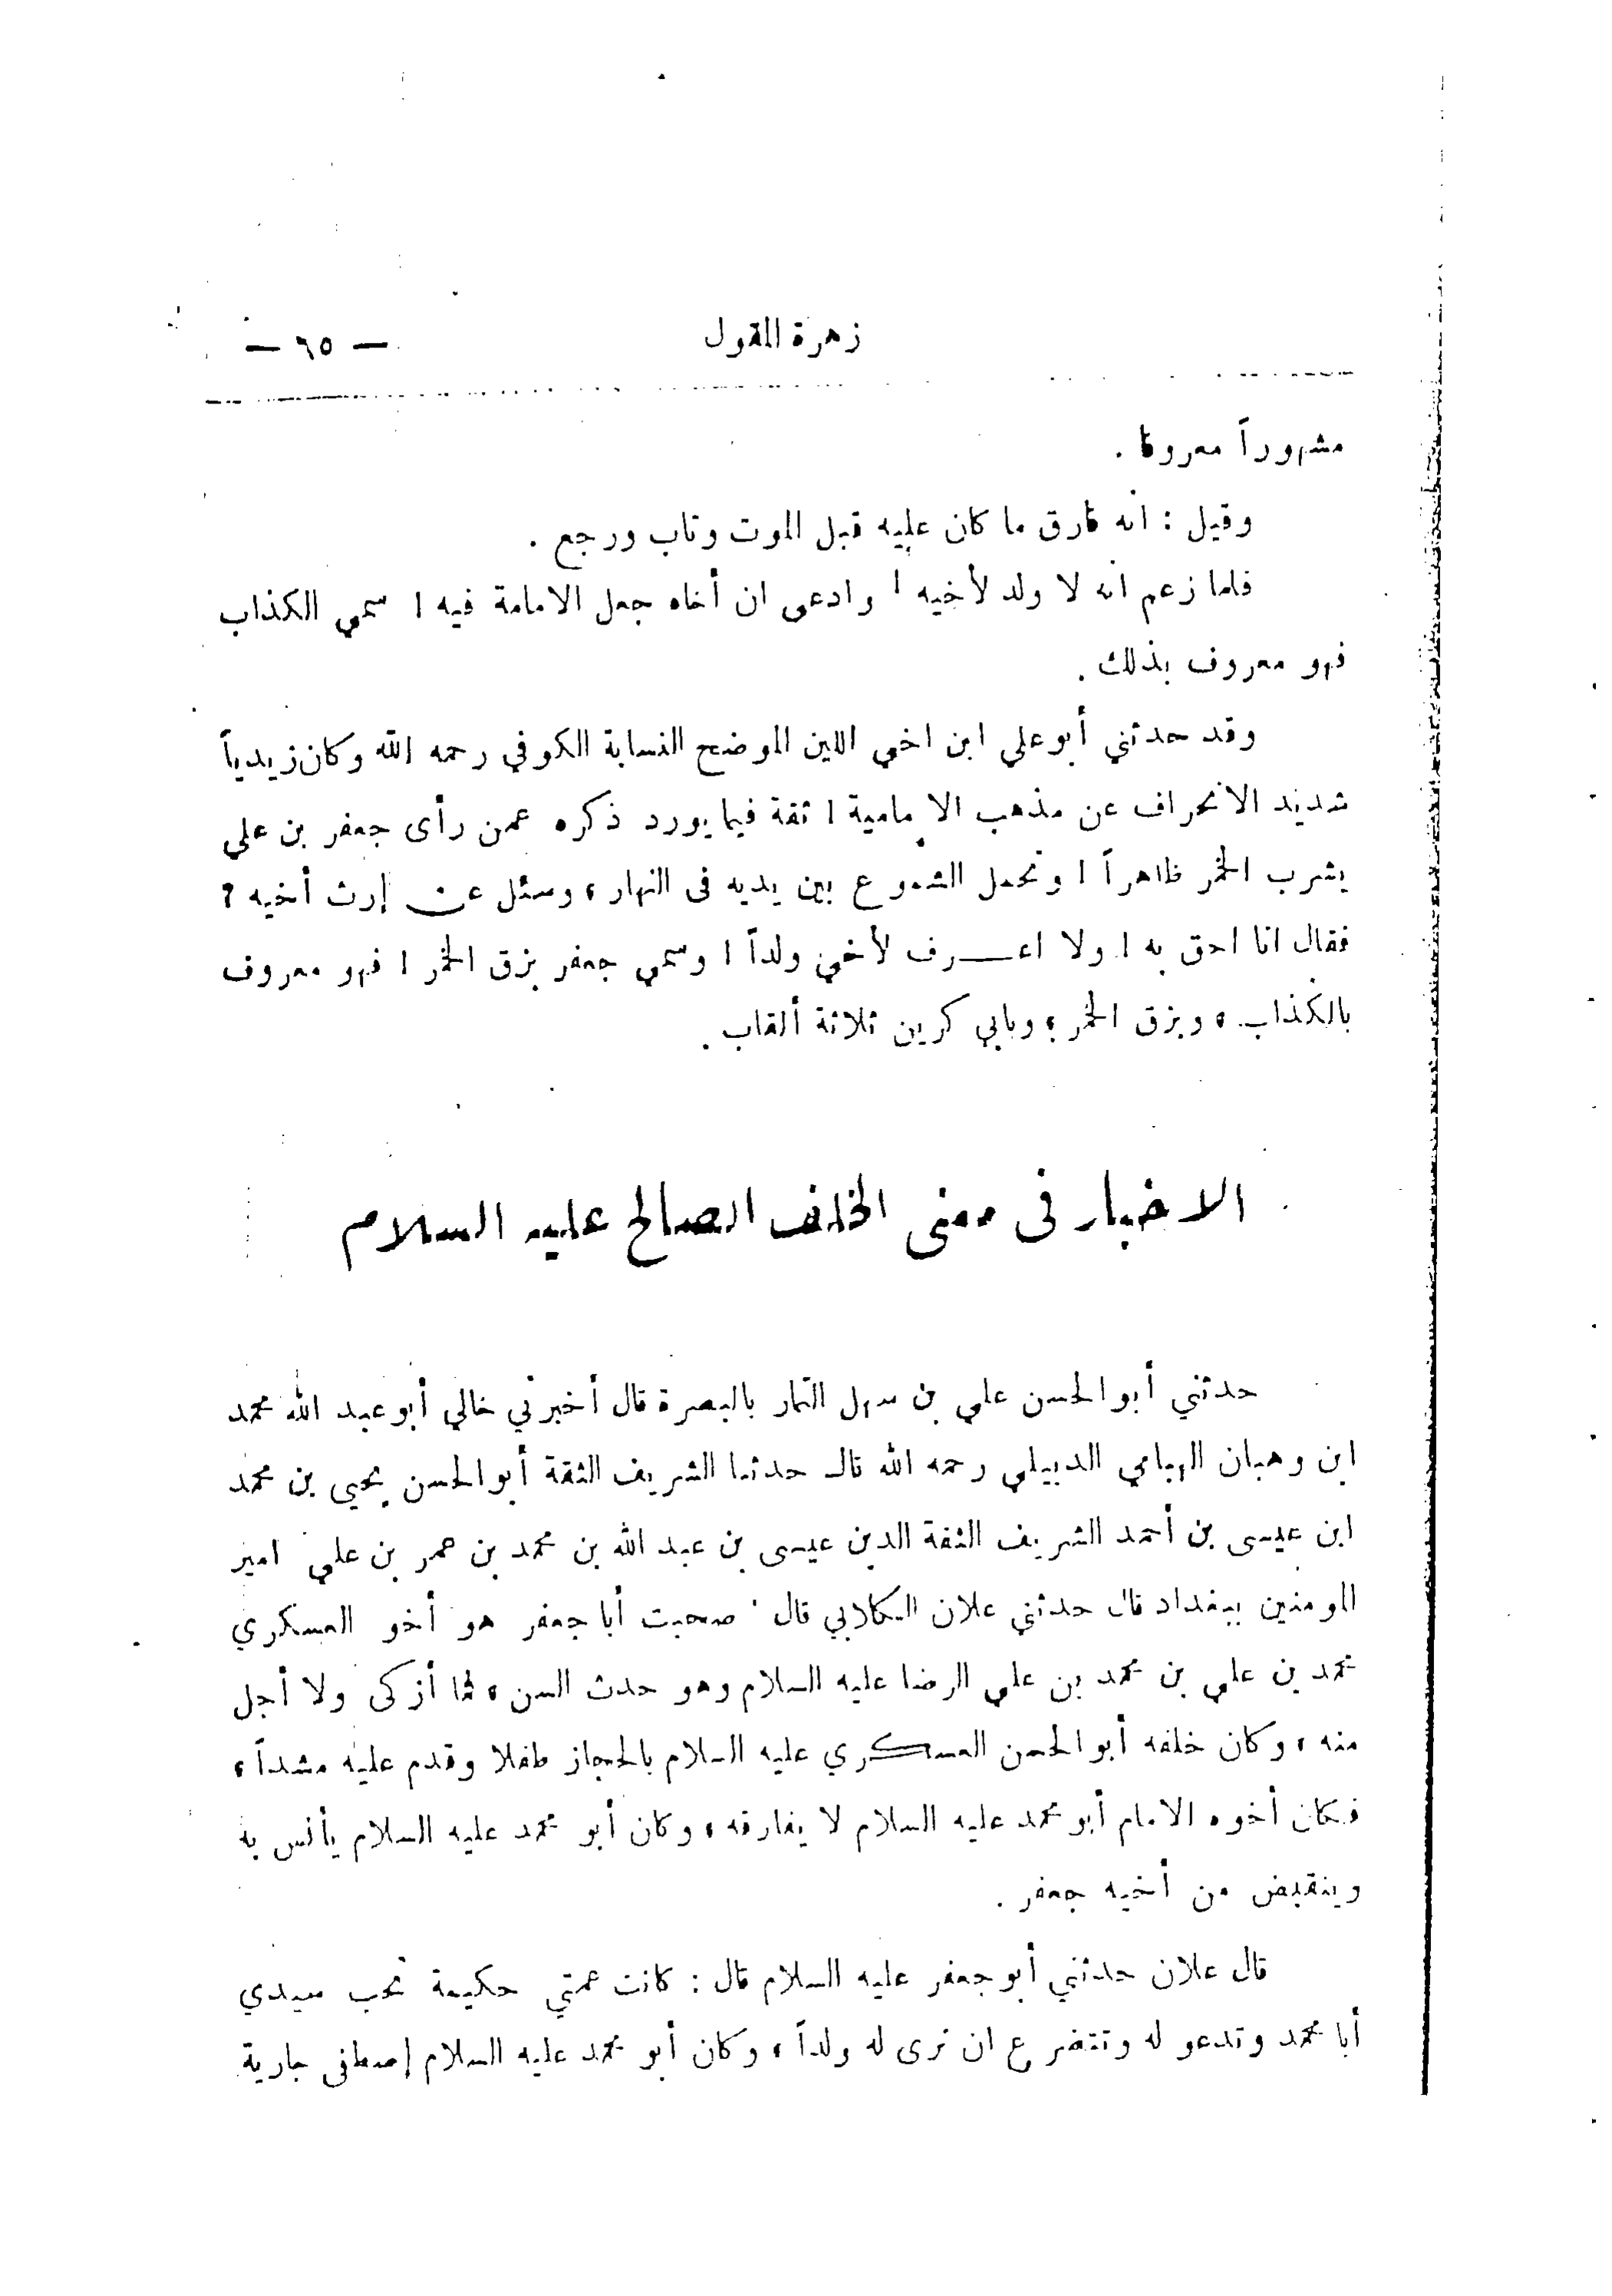 زهرة المقول
— ٦٥ —
مشهوراً معروفا .
وقيل : انه فارق ما كان عليه قبل الموت وتاب ورجع .
فلما زعم انه لا ولد لأخيه ! وادعى ان أخاه جعل الامامة فيه ! سمي الكذاب
فهو معروف بذلك .
وقد حدثني أبو علي ابن اخي اللبن الموضح النسابة الكوفي رحمه الله وكان زيدياً
شديد الانحراف عن مذهب الامامية ! ثقة فيما يورد ذكره عمن رأى جعفر بن علي
يشرب الخمر ظاهراً ! وتحمل الشموع بين يديه فى النهار ، وسئل عن إرث أخيه ؟
فقال انا احق به ! ولا اعـــرف لأخي ولداً ! وسمي جعفر بزق الخمر ! فهو معروف
بالكذاب ، وبزق الخمر ، وبابي كرين ثلاثة ألقاب .
الاخبار فى معنى الخلف الصالح عليه السلام
حدثني أبو الحسن علي بن سهل التمار بالبصرة قال أخبرني خالي أبو عبد الله محمد
ابن وهبان الدبيلي رحمه الله قال حدثنا الشريف الثقة أبو الحسن يحيى بن محمد
ابن عيسى بن أحمد الشريف الثقة الدين عيسى بن عبد الله بن محمد بن عمر بن علي امير
المومنين ببغداد قال حدثني علان الكلابي قال صحبت أبا جعفر هو أخو العسكري
محمد بن علي بن محمد بن علي الرضا عليه السلام وهو حدث السن ، فما أزكى ولا أجل
منه ، وكان خلفه أبو الحسن العسكري عليه السلام بالحجاز طفلا وقدم عليه مشداً ،
فكان أخوه الامام أبو محمد عليه السلام لا يفارقه ، وكان أبو محمد عليه السلام يأنس به
وينقبض من أخيه جعفر .
قال علان حدثني أبو جعفر عليه السلام قال : كانت عمتي حكيمة تحب سيدي
أبا محمد وتدعو له وتتضرع ان ترى له ولداً ، وكان أبو محمد عليه السلام إصطفى جارية